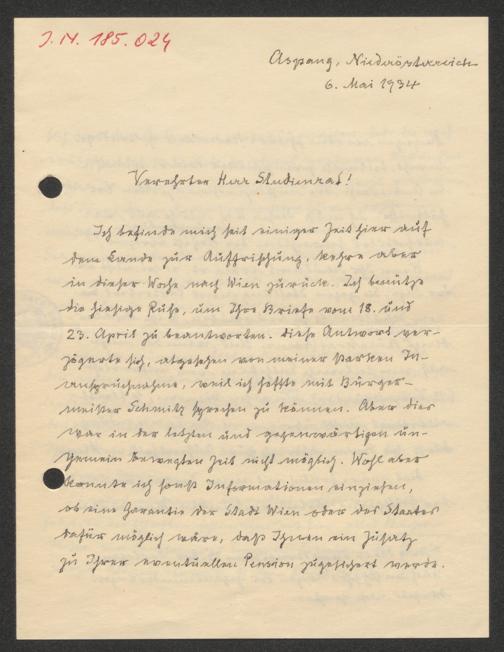 J. N. 185.024
Aspang, Niederösterreich
6. Mai 1934
Verehrter Herr Studienrat!
Ich befinde mich seit einiger Zeit hier auf
dem Lande zur Auffrischung, kehre aber
in dieser Woche nach Wien zurück. Ich benütze
die hiesige Ruhe, um Ihre Briefe vom 18. und
23. April zu beantworten. Diese Antwort ver-
zögerte sich, abgesehen von meiner starken In-
anspruchnahme, weil ich hoffte mit Bürger-
meister Schmitz sprechen zu können. Aber dies
war in der letzten und gegenwärtigen un-
gemein bewegten Zeit nicht möglich. Wohl aber
konnte ich sonst Informationen einziehen,
ob eine Garantie der Stadt Wien oder des Staates
dafür möglich wäre, daß Ihnen ein Zusatz
zu Ihrer eventuellen Pension zugesichert werde.